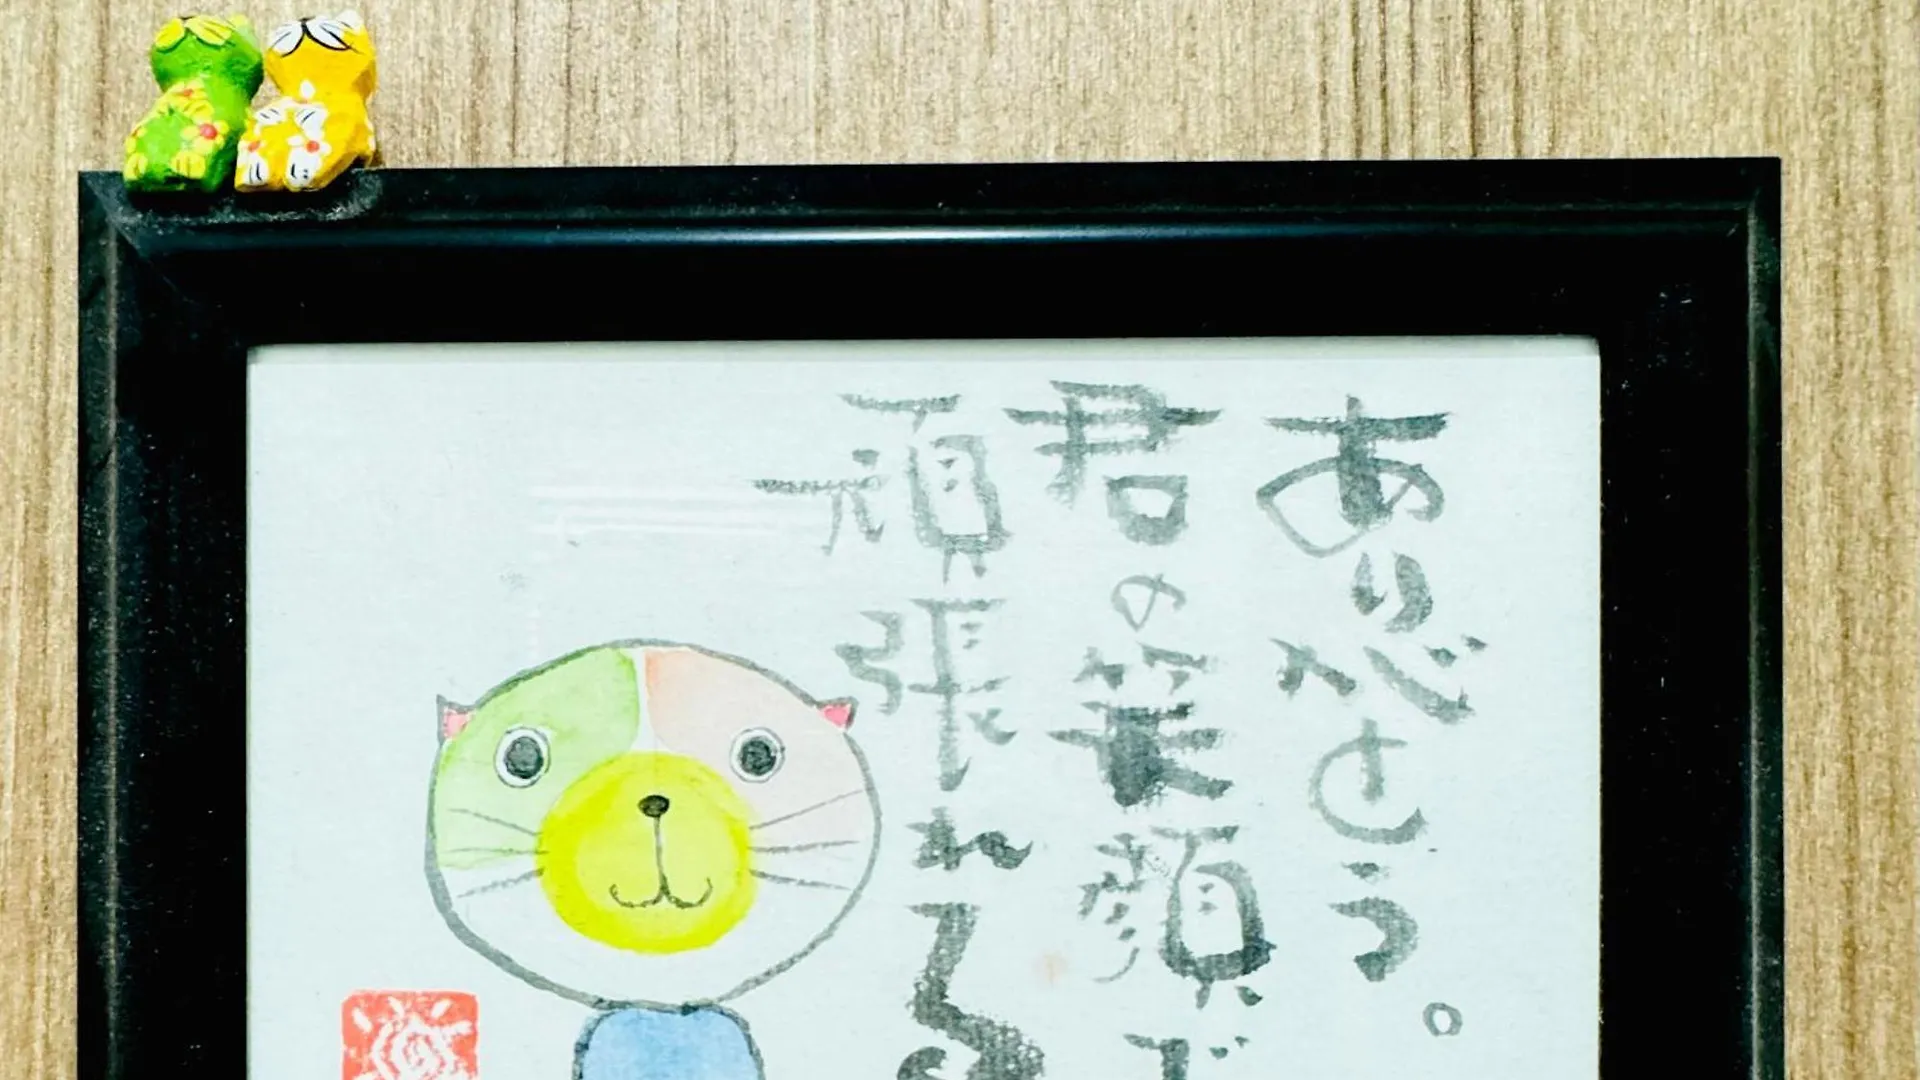 ありがとう。
君の笑顔で
頑張れる